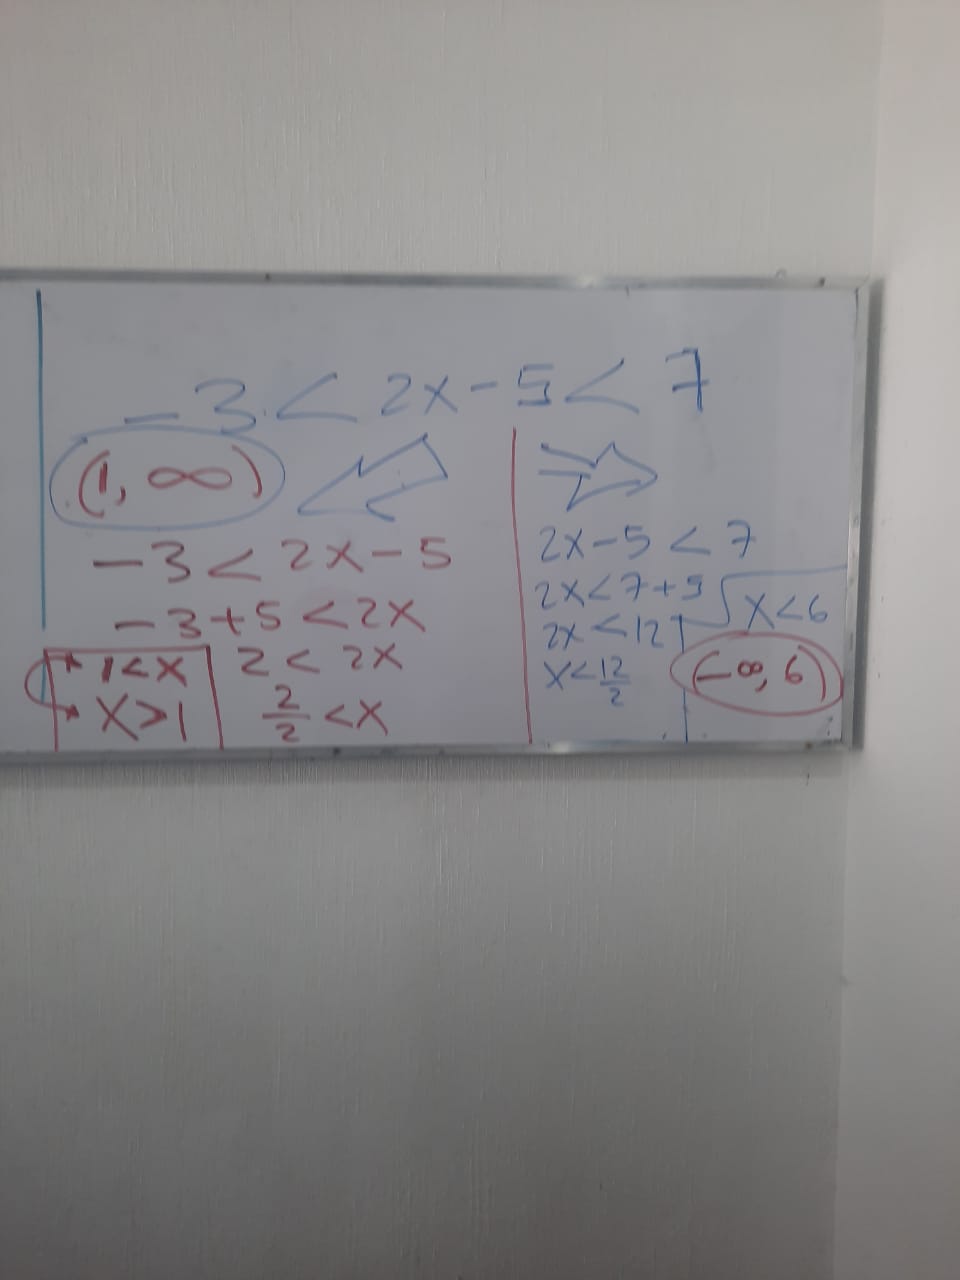 -3 < 2x - 5 < 7
(1, ∞)
-3 < 2x - 5
-3 + 5 < 2x
2 < 2x
2/2 < x
1 < x
x > 1
2x - 5 < 7
2x < 7 + 5
2x < 12
x < 12/2
x < 6
(-∞, 6)